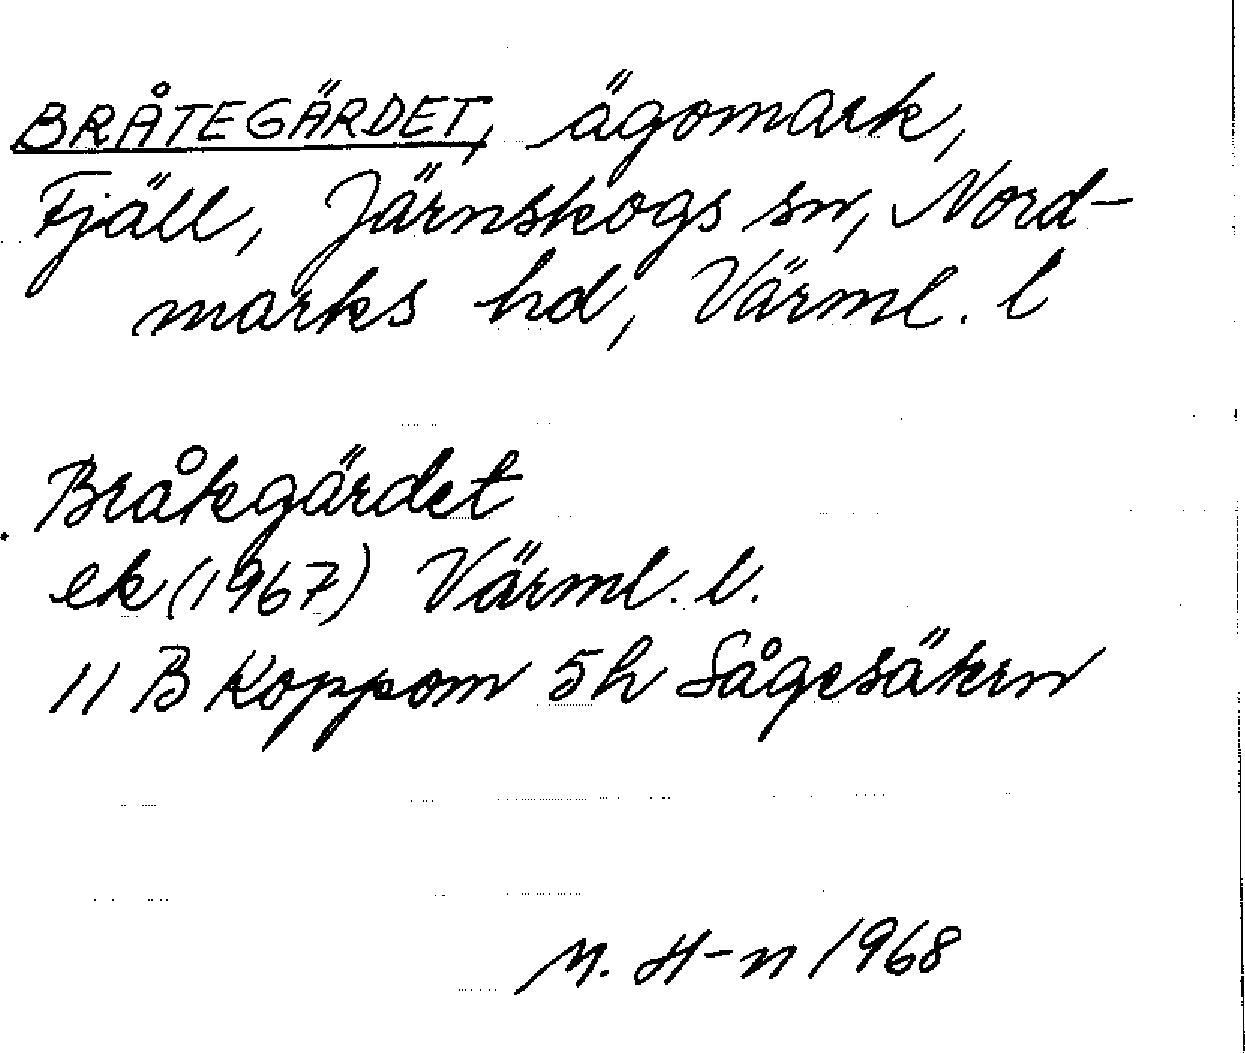 BRÅTEGÄRDET, ägomark,
Fjäll, Järnskogs sn, Nord-
marks hd, Värml. l
Bråtegärdet
ek (1967) Värml. l.
11 B Koppom 5h Sågesäkern
M. H-n 1968